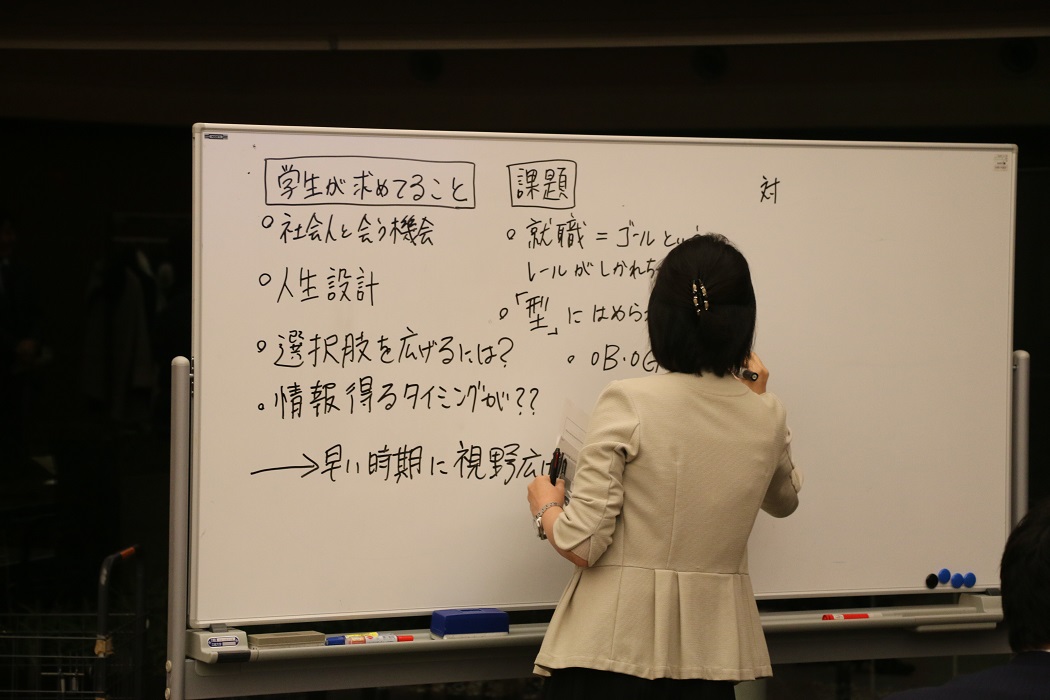 学生が求めてること
○社会人と会う機会
○人生設計
○選択肢を広げるには?
○情報得るタイミングが??
→早い時期に視野広げ
課題
○就職=ゴールという
レールがしかれち
○「型」にはめら
○OB・OG
対